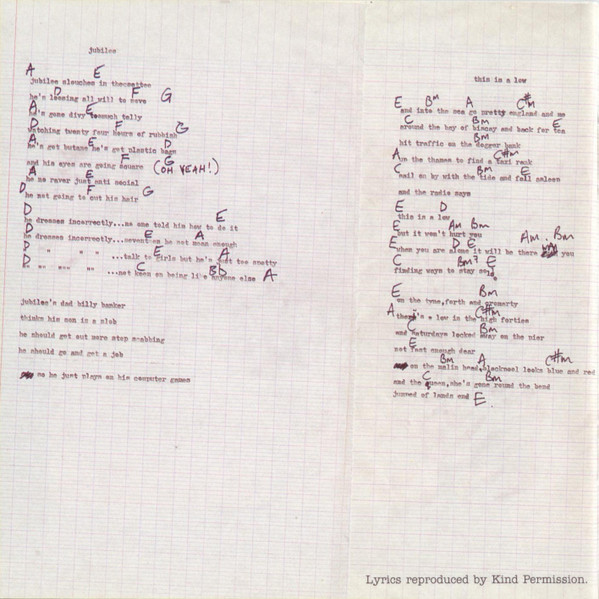 jubilee
A E
jubilee slouches in the settee
D F G
he's loosing all will to move
A E
he's gone divy too much telly
D F G
watching twenty four hours of rubbish
A E D
he's got butane he's got plastic bags
F G
and his eyes are going square (OH YEAH!)
A E
he no raver just anti social
D F G
he not going to cut his hair
D E
he dresses incorrectly...no one told him how to do it
D E A
he dresses incorrectly...seventeen he not mean enough
D E A
" " " ...talk to girls but he's just too snotty
D C B D A
...not keen on being like anyone else
jubilee's dad billy banker
thinks his son is a slob
he should get out more stop scabbing
he should go and get a job
so he just plays on his computer games
this is a low
E Bm A C#m
and into the sea go pretty england and me
C Bm E
around the bay of biscay and back for tea
Bm
hit traffic on the dogger bank
A C#m
up the thames to find a taxi rank
C Bm E
sail on by with the tide and fall asleep
and the radio says
E D
this is a low
E Am Bm
but it won't hurt you
E D E Am Bm
when you are alone it will be there you
C Bm7 E
finding ways to stay solo
E Bm
on the tyne, forth and cromarty
A C#m
there's a low in the high forties
C Bm
and saturdays locked away on the pier
E
not fast enough dear
Bm A C#m
on the malin head, blackpool looks blue and red
C Bm
and the queen, she's gone round the bend
E
jumped of lands end
Lyrics reproduced by Kind Permission.